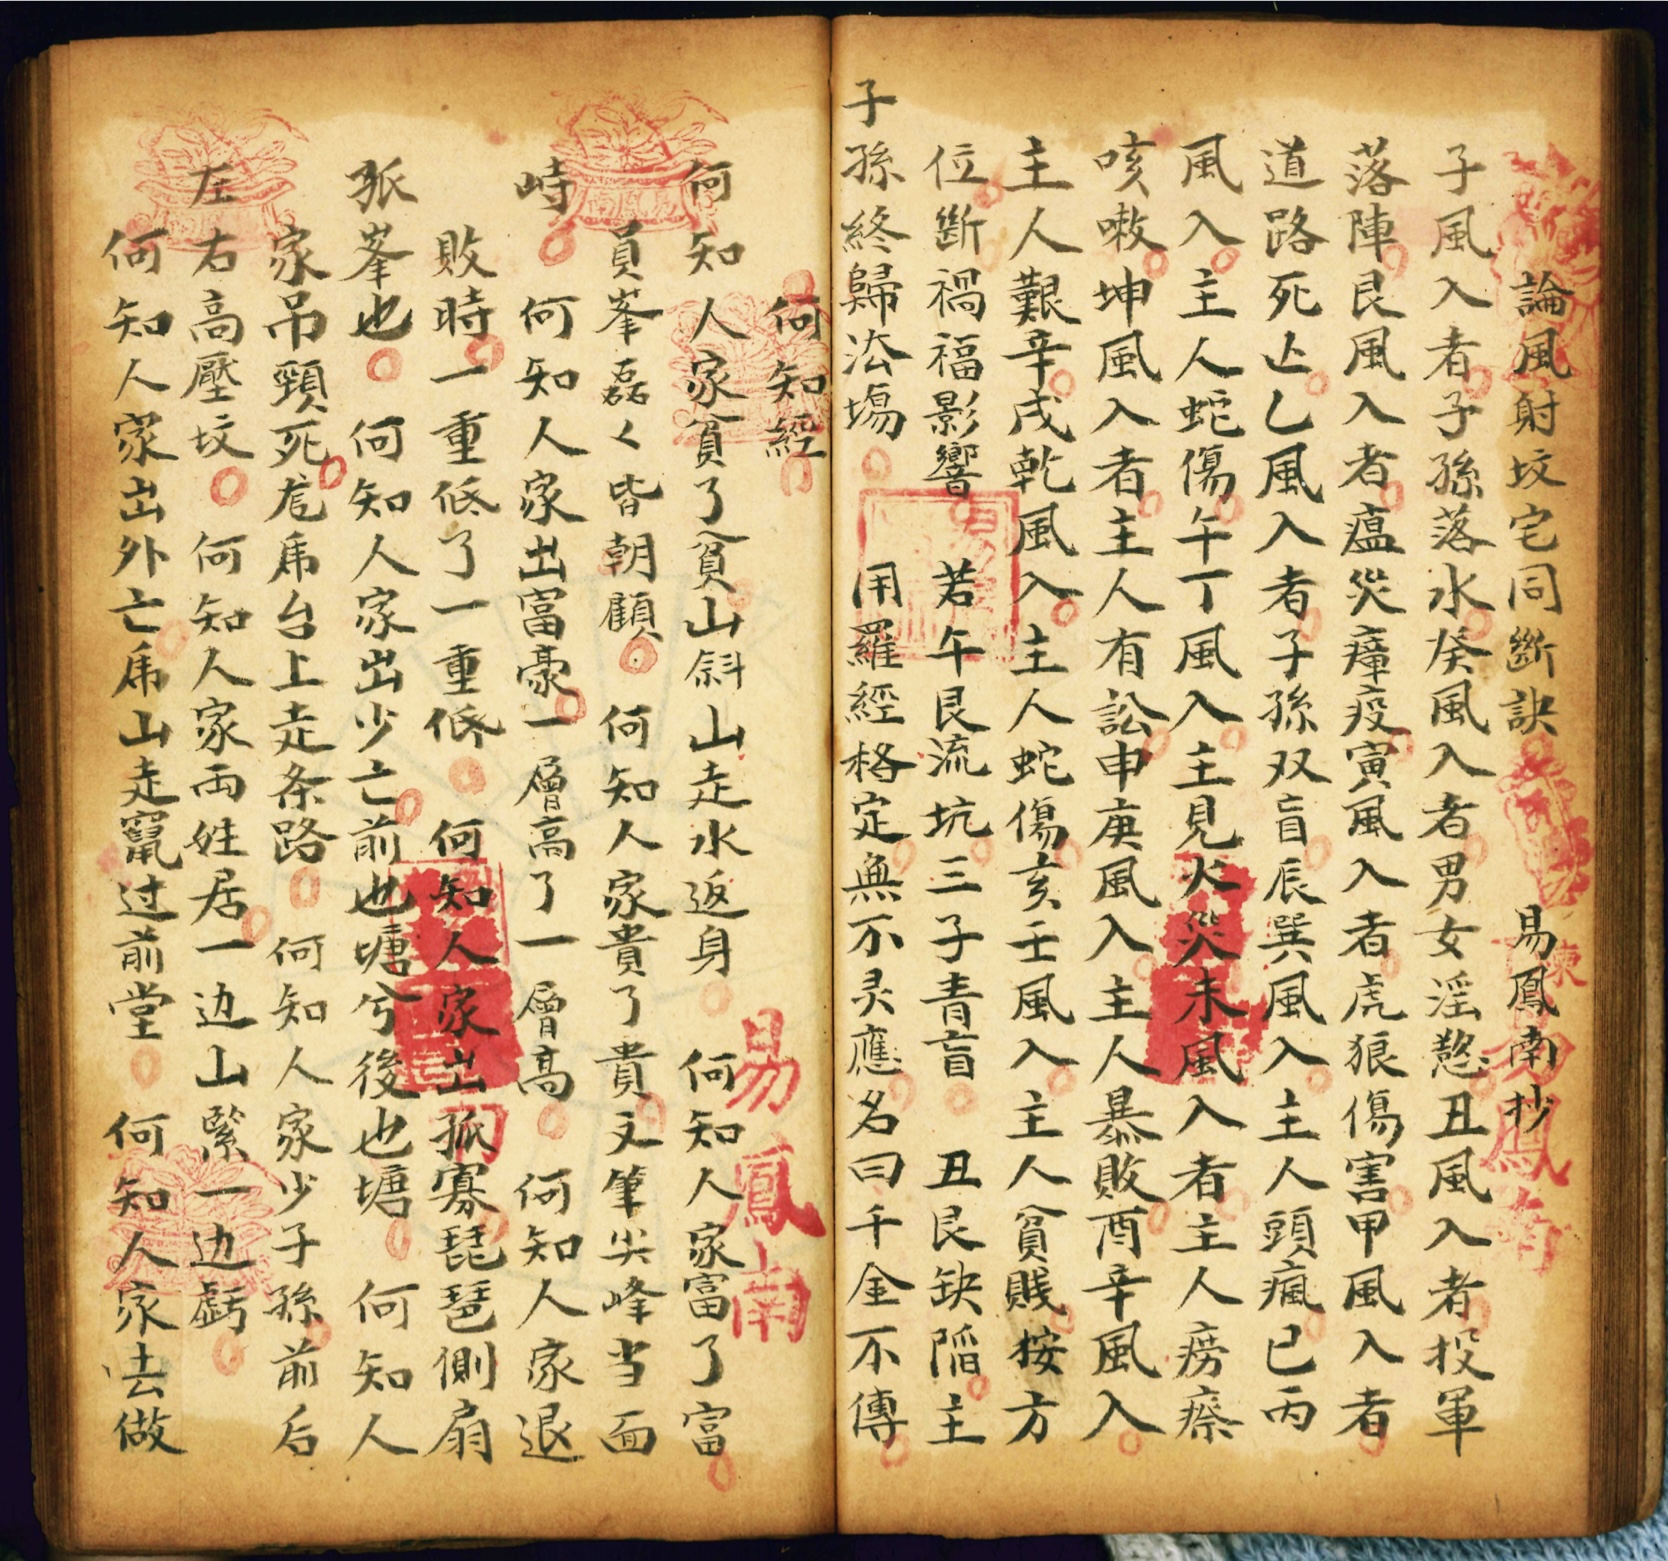 論風射坟宅同斷訣 易鳳南抄
子風入者子孫落水癸風入者男女淫慾丑風入者投軍
落陣艮風入者瘟災瘴疫寅風入者虎狼傷害甲風入者
道路死亾乙風入者子孫双盲辰巽風入主人頭瘋巳丙
風入主人蛇傷午丁風入主見火災未風入者主人癆瘵
咳嗽坤風入者主人有訟申庚風入主人暴敗酉辛風入
主人艱辛戌乾風入主人蛇傷亥壬風入主人貧賤按方
位斷禍福影響 若午艮流坑三子青盲 丑艮缺陷主
子孫終歸法場 用羅經格定無不灵應名曰千金不傳
何知經
何知人家貧了貧山斜山走水返身 何知人家富了富
員峯磊く皆朝顧 何知人家貴了貴文筆尖峰当面
峙 何知人家出富豪一層高了一層高 何知人家退
敗時一重低了一重低 何知人家出孤寡琵琶側扇
孤峯也 何知人家出少亡前也塘兮後也塘 何知人
家吊頸死龙虎台上走条路 何知人家少子孫前后
左右高壓坟 何知人家両姓居一边山緊一边虧
何知人家出外亡虎山走竄过前堂 何知人家去做
易鳳南